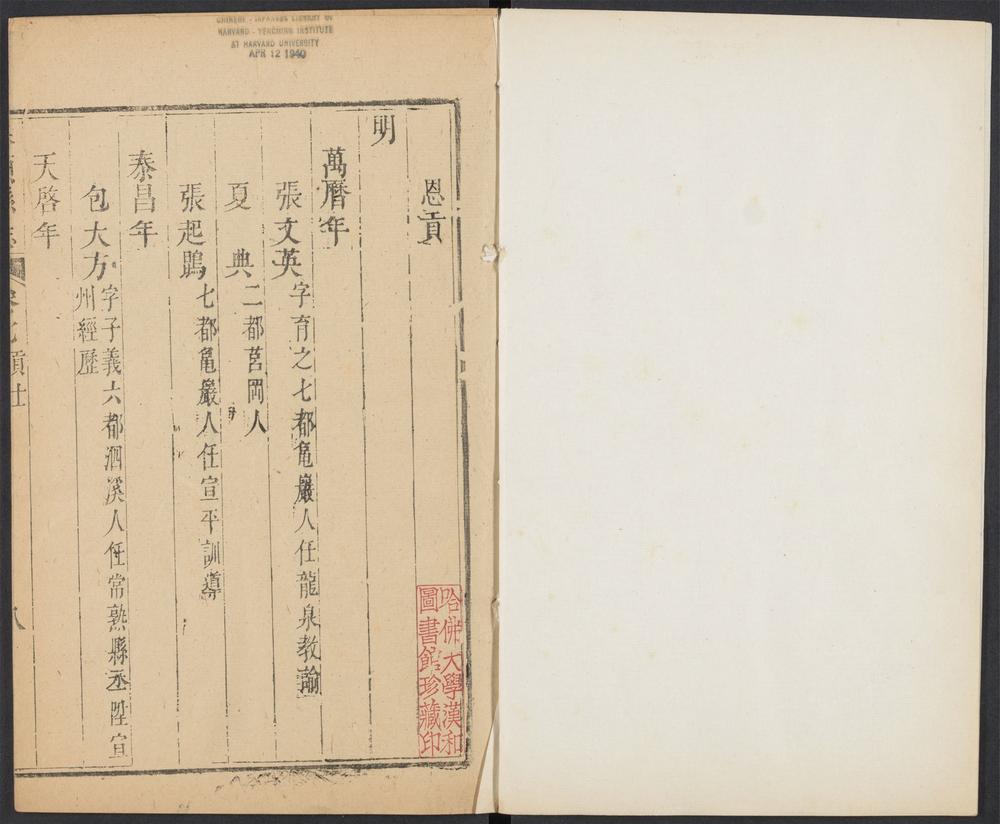 CHINESE - JAPANESE LIBRARY OF
HARVARD - YENCHING INSTITUTE
AT HARVARD UNIVERSITY
APR 12 1940
恩貢
明
萬曆年
張文英 字育之七都龜巖人任龍泉教諭
夏典 二都莒岡人
張起鵾 七都龜巖人任宣平訓導
泰昌年
包大方 字子義六都泗溪人任常熟縣丞陞宣
州經歷
天啓年
貢士
八
哈佛大學漢和
圖書館珍藏印